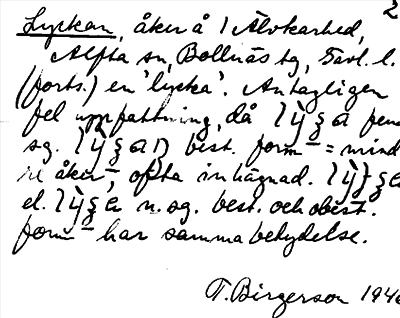 2
Lyckan, åker å 1 Älvkarhed,
Alfta sn, Bollnäs tg, Gävl. l.
(forts.) en 'lycka'. Antagligen
fel uppfattning, då
sg. best. form = mind
re åker, ofta inhägnad.
el. n. sg. best. och obest.
form har samma betydelse.
T. Birgerson 1946